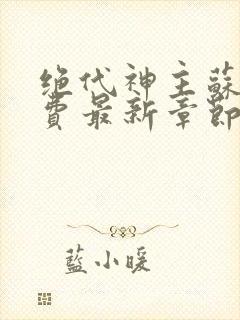 绝代神主蘇
費最新章節
藍小暖